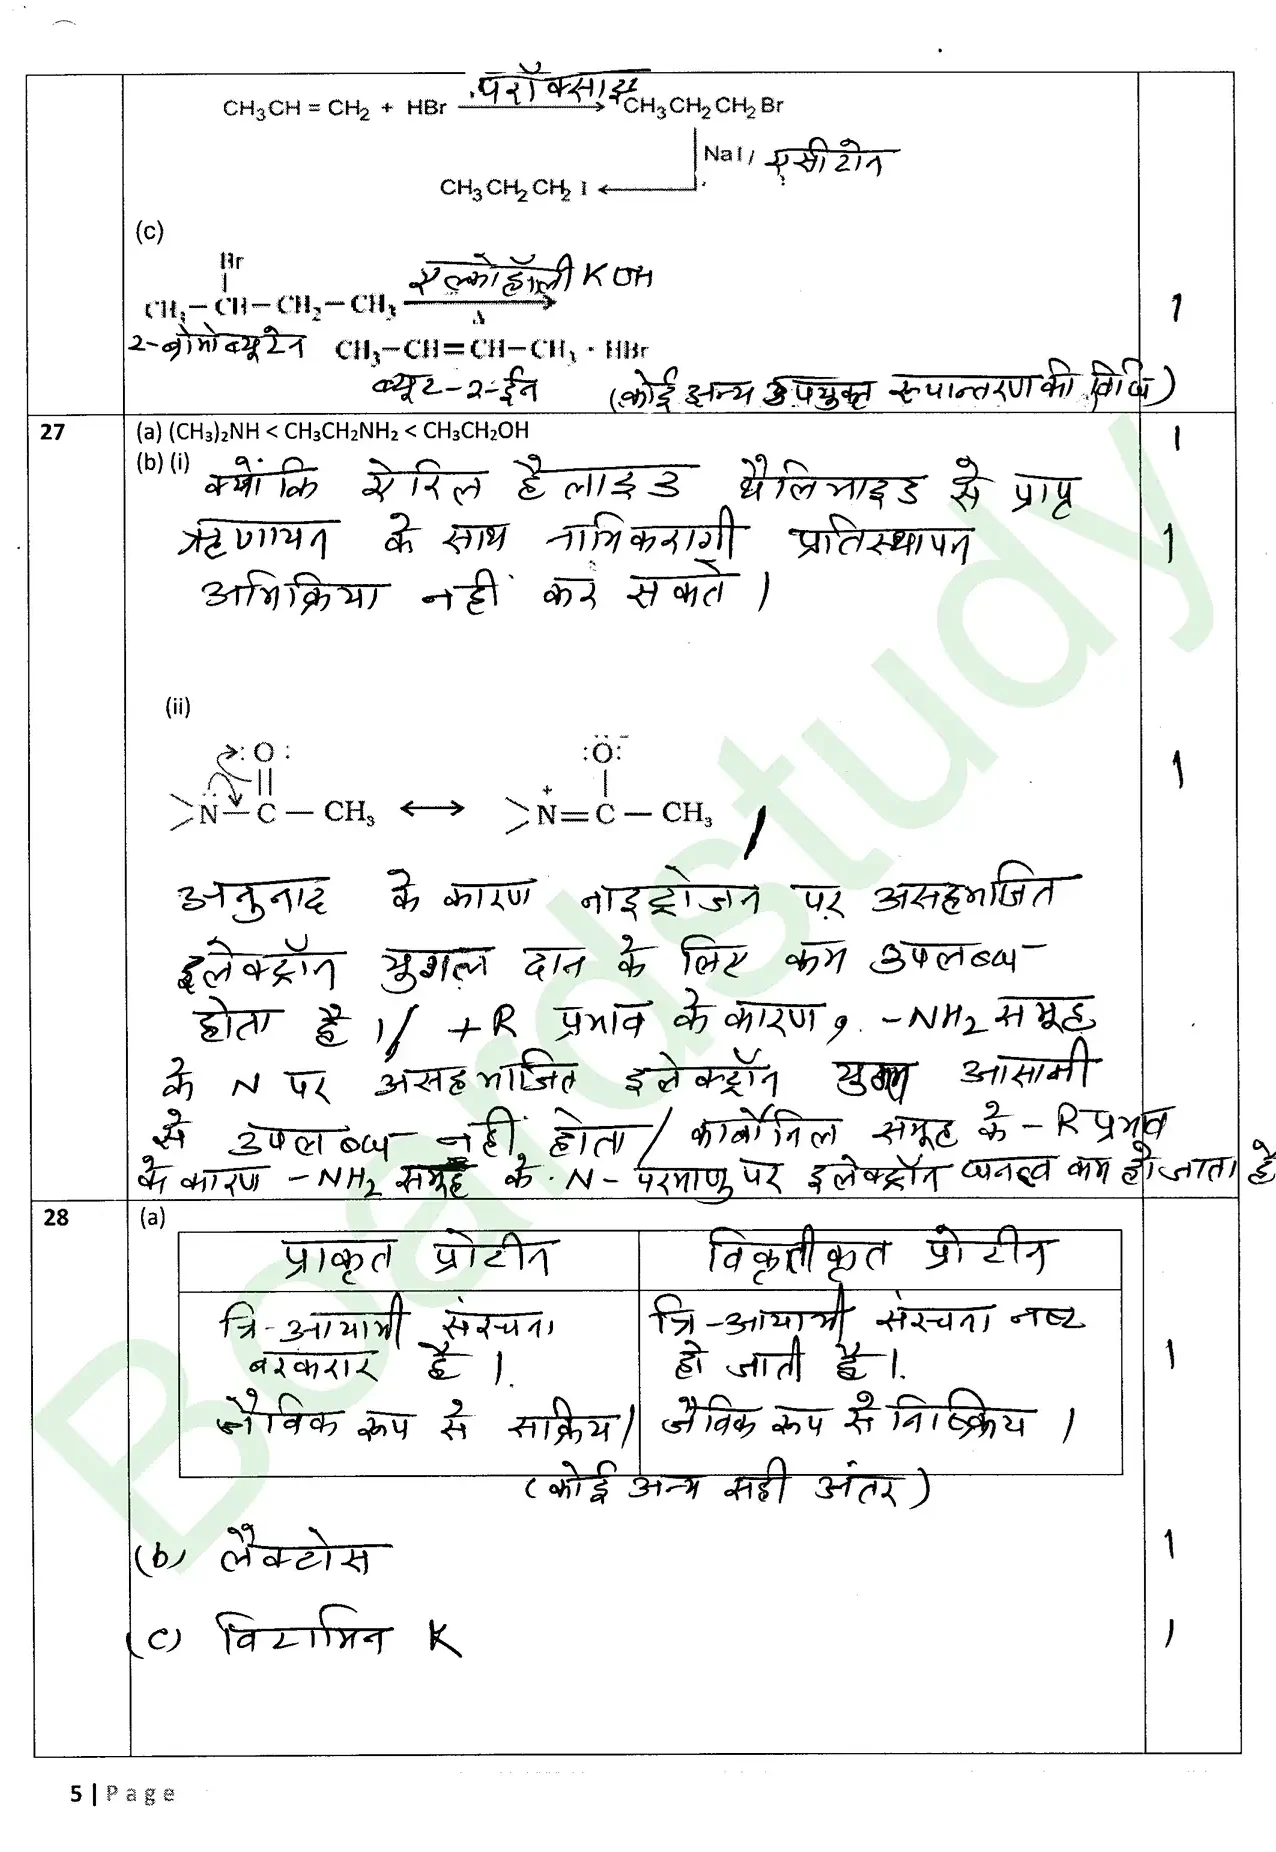 CH₃CH = CH₂ + HBr परॉक्साइड CH₃CH₂CH₂Br
NaI, एसीटोन
CH₃CH₂CH₂ I
(c)
Br
CH₃−CH−CH₂−CH₃ एल्कोहॉली KOH
Δ
2-ब्रोमोब्यूटेन CH₃−CH=CH−CH₃ · HBr
ब्यूट-2-ईन (कोई अन्य उपयुक्त रूपान्तरण की विधि)
1
27 (a) (CH₃)₂NH < CH₃CH₂NH₂ < CH₃CH₂OH 1
(b) (i) क्योंकि ऐरिल हैलाइड थैलिमाइड से प्राप्त
ऋणायन के साथ नाभिकरागी प्रतिस्थापन 1
अभिक्रिया नहीं कर सकते।
(ii)
:O: :Ö:⁻
>N̈−C−CH₃ ⟷ >N⁺=C−CH₃ / 1
अनुनाद के कारण नाइट्रोजन पर असहभाजित
इलेक्ट्रॉन युगल दान के लिए कम उपलब्ध
होता है।/ +R प्रभाव के कारण, -NH₂ समूह
के N पर असहभाजित इलेक्ट्रॉन युग्म आसानी
से उपलब्ध नहीं होता/ कार्बोनिल समूह के -R प्रभाव
के कारण -NH₂ समूह के N-परमाणु पर इलेक्ट्रॉन घनत्व कम हो जाता है
28 (a)
प्राकृत प्रोटीन विकृतीकृत प्रोटीन
त्रि-आयामी संरचना त्रि-आयामी संरचना नष्ट
बरकरार है। हो जाती है। 1
जैविक रूप से सक्रिय। जैविक रूप से निष्क्रिय।
(कोई अन्य सही अंतर)
(b) लैक्टोस 1
(c) विटामिन K 1
5 | Page
Boardstudy